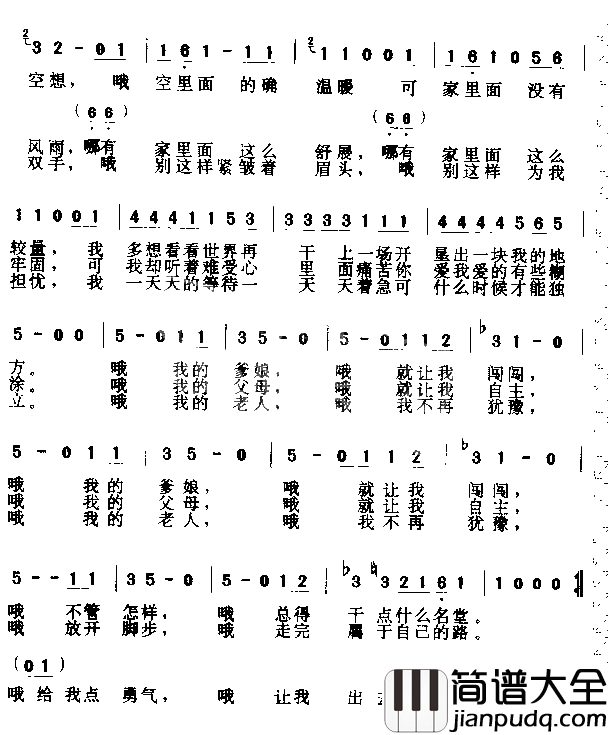 3 2 - 0 1 1 6 1 - 1 1 1 1 0 0 1 1 6 1 0 5 6
空想， 哦 空里面 的确 温暖 可 家里面 没有
(6 6) (6 6)
风雨，哪有 家里面 这么 舒展，哪有 家里面 这么
双手，哦 别这样 紧皱着 眉头，哦 别这样 为我
1 1 0 0 1 4 4 4 1 1 5 3 3 3 3 3 1 1 1 4 4 4 4 5 6 5
较量，我 多想看看世界再 干上一场开 垦出一块我的地
牢固，可 我却听着难受心 里面痛苦你 爱我爱的有些糊
担忧，我 一天天的等待一 天天着急可 爱什么时候才能独
5 - 0 0 5 - 0 1 1 3 5 - 0 5 - 0 1 1 2 ♭3 1 - 0
方。 哦 我的 爹娘， 哦 就让我 闯闯，
涂。 哦 我的 父母， 哦 就让我 自主，
立。 哦 我的 老人， 哦 我不再 犹豫，
5 - 0 1 1 3 5 - 0 5 - 0 1 1 2 ♭3 1 - 0
哦 我的 爹娘， 哦 就让我 闯闯，
哦 我的 父母， 哦 就让我 自主，
哦 我的 老人， 哦 我不再 犹豫，
5 - - 1 1 3 5 - 0 5 - 0 1 2 ♭3 ♭3 2 1 6 1 1 0 0 0
哦 不管 怎样， 哦 总得 干点什么名堂。
哦 放开 脚步， 哦 走完 属于自己的路。
(0 1)
哦给 我点 勇气， 哦 让我 出
简谱大全
jianpudq.com